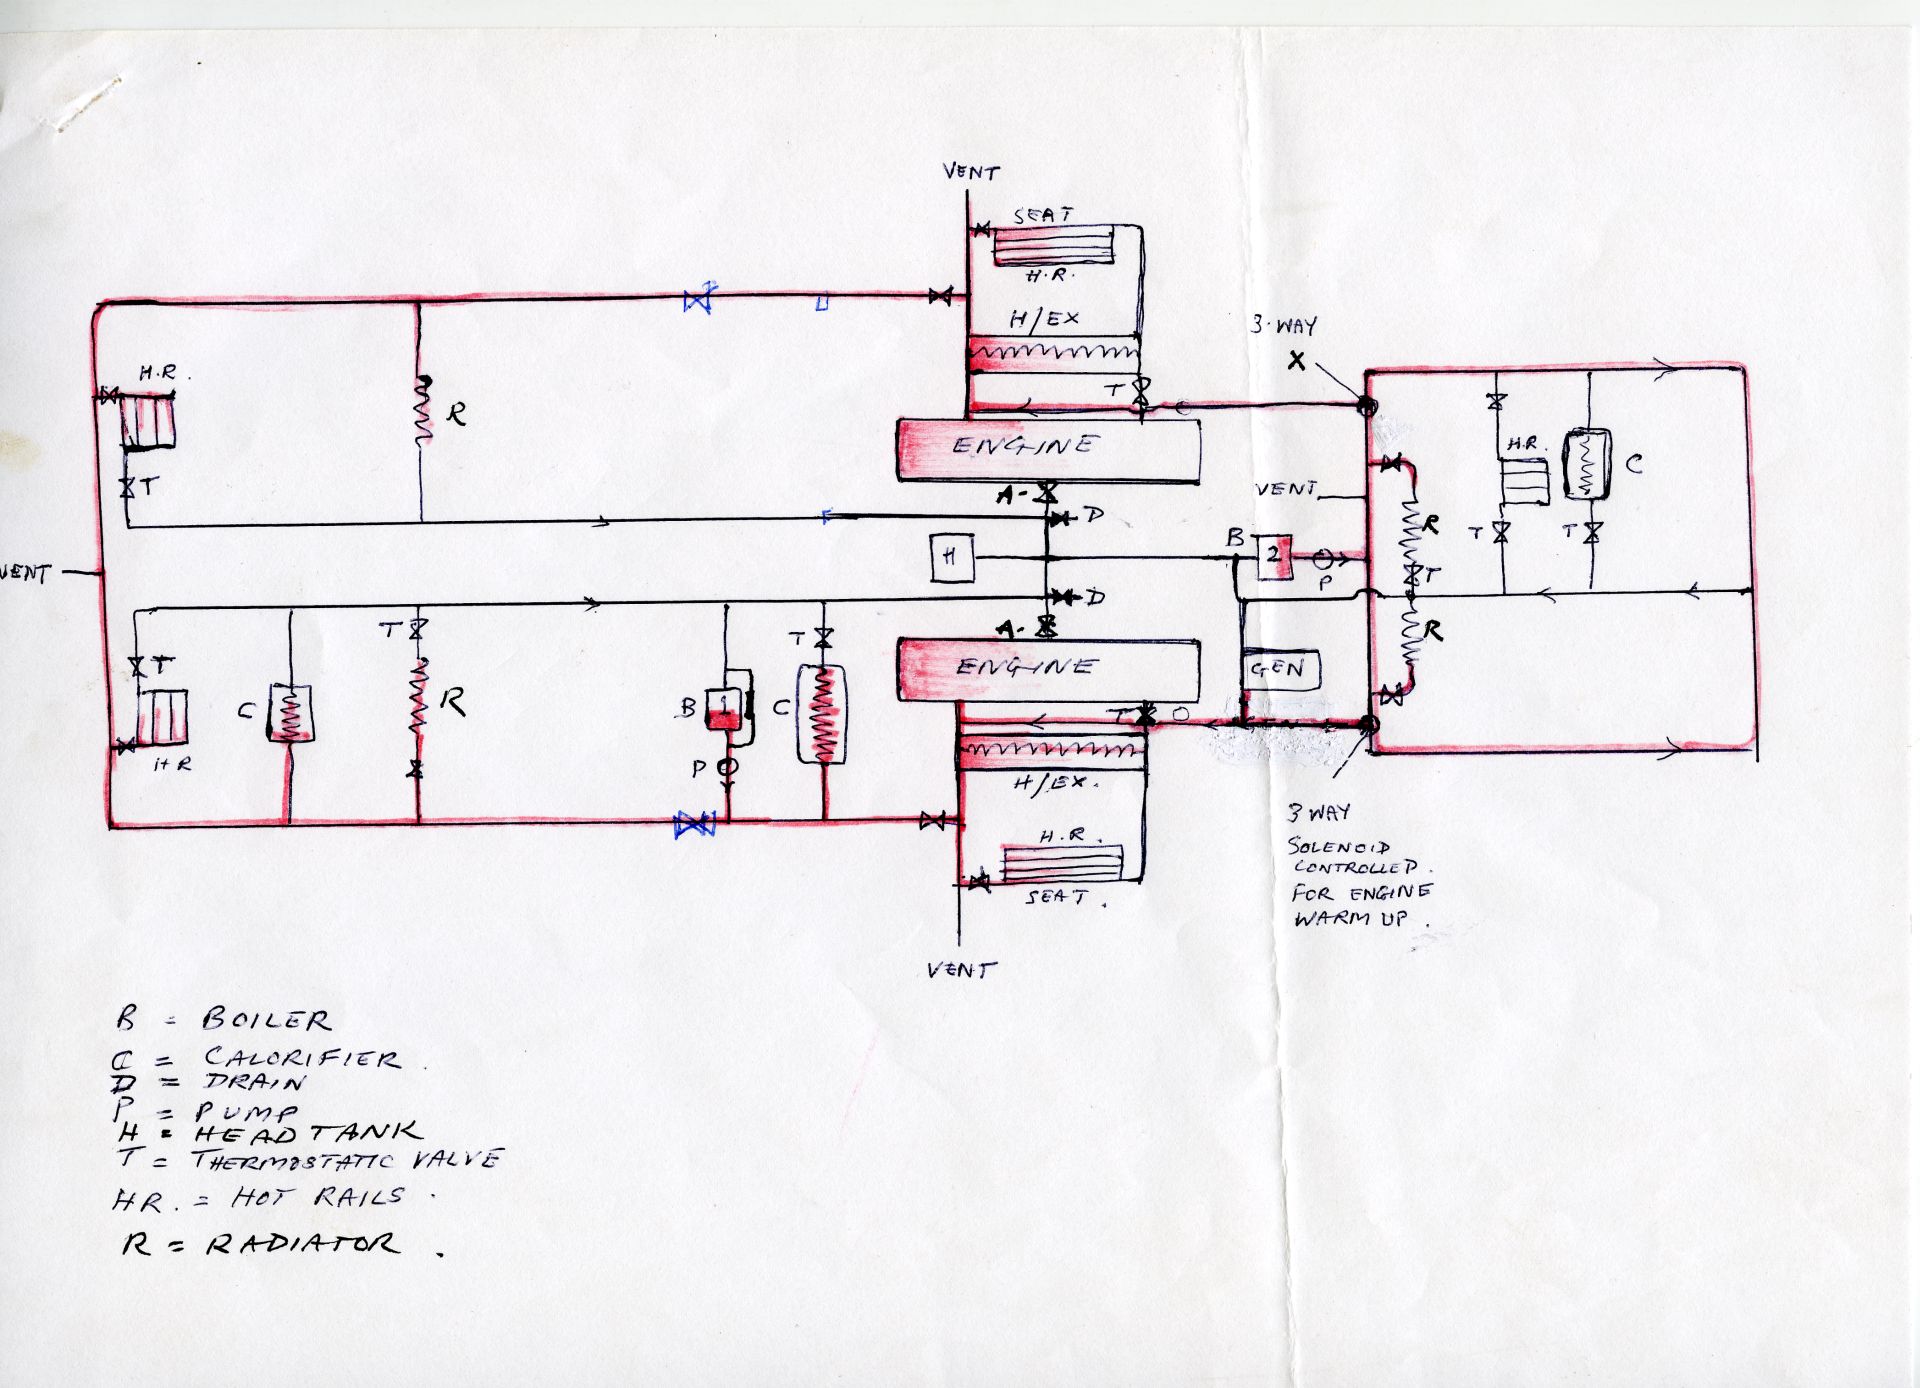 VENT
SEAT
H.R.
H/EX
3-WAY
X
H.R.
R
T
ENGINE
H.R.
C
T
A-
VENT
D
R
B
H
2
T
T
VENT
P
T
D
T
T
A-
R
T
ENGINE
GEN
C
R
B
1
C
T
O
P
HR
H/EX.
3 WAY
H.R.
SOLENOID
CONTROLLED.
FOR ENGINE
SEAT.
WARM UP.
VENT
B = BOILER
C = CALORIFIER.
D = DRAIN
P = PUMP
H = HEAD TANK
T = THERMOSTATIC VALVE
HR. = HOT RAILS.
R = RADIATOR.